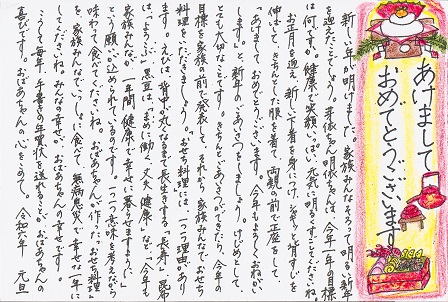 あけまして
おめでとうございます
新しい年が明けました。家族みんなそろって明るい新年
を迎えたことでしょう。 明依ちゃんは、今年一年の目標
は何ですか。健康で笑顔いっぱい元気に明るくすごしてくださいね。
お正月を迎え新しい下着を身につけ、背すじを
伸ばして、きちんとした服を着て、両親の前で正座をして
「あけましておめでとうございます。今年もよろしくおねがい
します」と、新年のごあいさつをしましょう。けじめとして、
とても大切なことです。きちんとあいさつができたら、今年の
目標を家族の前で発表して、それから家族みんなでおせち
料理をいただきましょう。おせち料理には、一つ一つ理由があり
ます。えびは背中が丸くなるまで長生きする「長寿」昆布
は「よろこぶ」黒豆は、まめに働く、丈夫、健康 など、「今年も
家族みんなが一年間、健康で幸せに暮らせますように」
という願いが込められているのです。一つ一つ意味を考えながら
味わって食べてくださいね。おばあちゃんの作った"おせち料理"
を、家族みんなでいっしょに食べて、無病息災で幸せな一年に
してくださいね。みんなの幸せが、おばあちゃんの幸せです。
こうして毎年、手書きの年賀状を送れることが、おばあちゃんの
喜びです。おばあちゃんの心をこめて。 令和六年 元旦